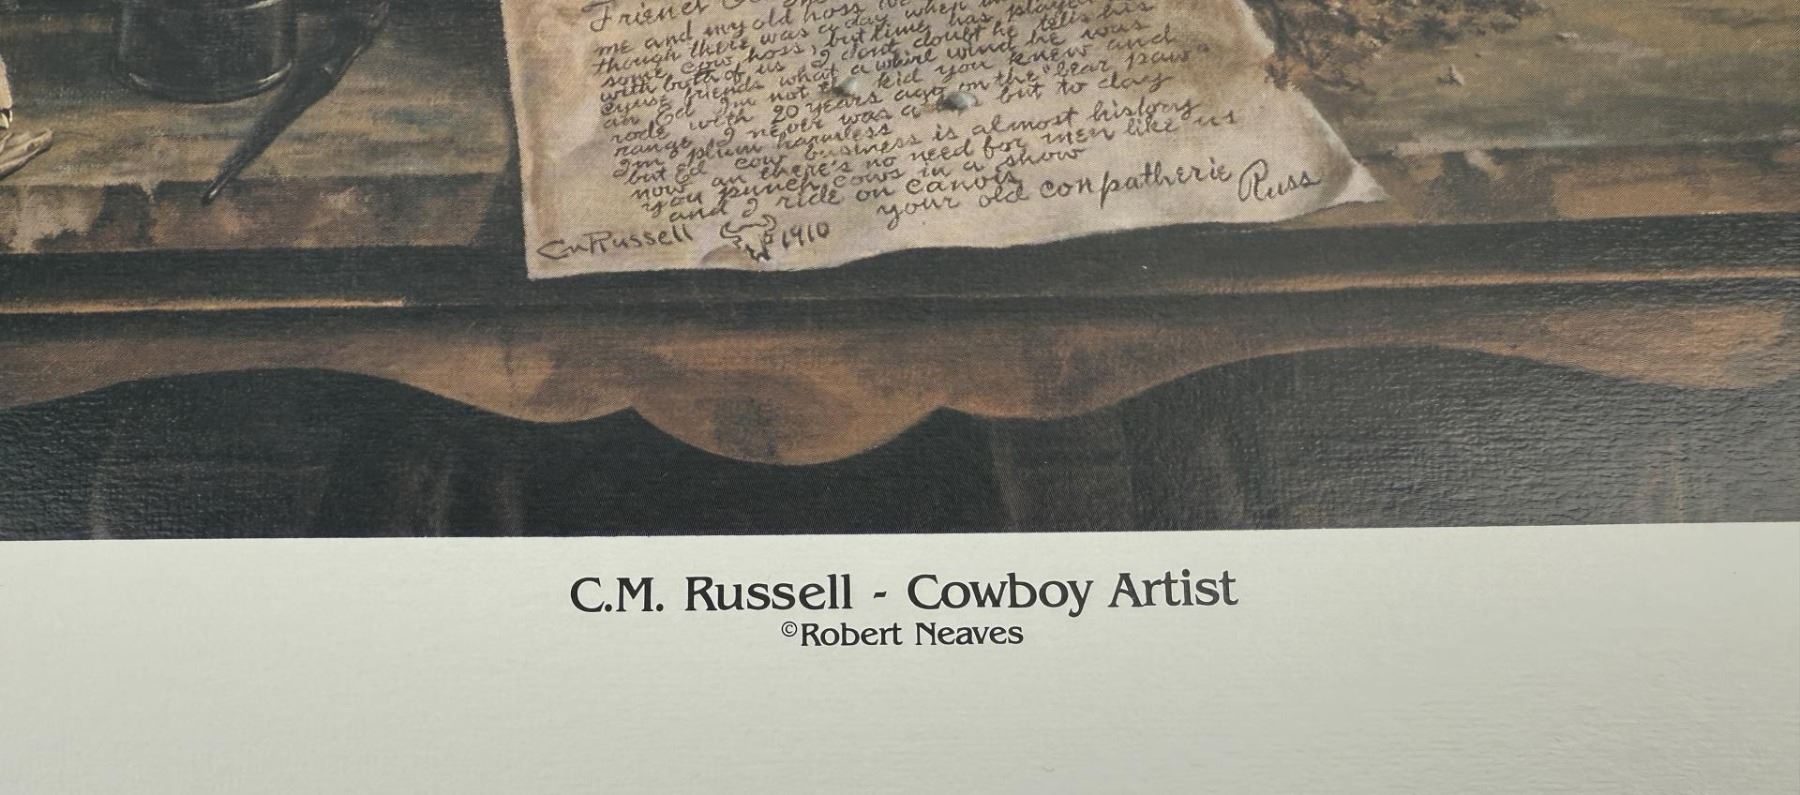 Friend
me and my old hoss
though there was a day when
some cow hoss, but time has played
with both of us I dont doubt he tells his
cyuse friends what a whirl wind he was
an Ed Im not the kid you knew and
rode with 20 years ago on the "bear paw"
range I never was a but to day
Im plum harmless
but Ed cow business is almost history
now an there's no need for men like us
you punch cows in a show
and I ride on canvis
your old conpatherie Russ
CM Russell 1910
C.M. Russell - Cowboy Artist
©Robert Neaves